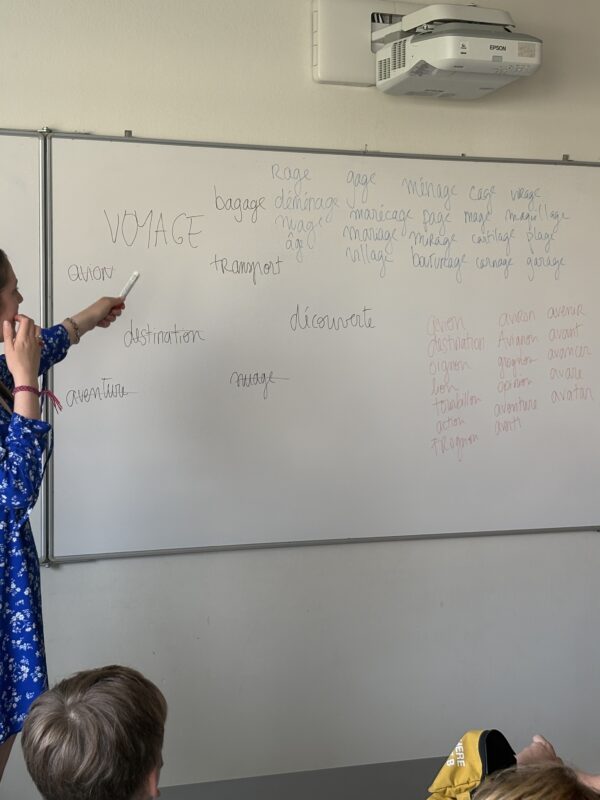 EPSON
VOYAGE
bagage
avion
transport
destination
découverte
aventure
nuage
Rage gage ménage cage virage
déménage marécage page mage maquillage
nuage mariage mirage cartilage plage
âge village barurage carnage garage
avion aviron avenir
destination Avignon avant
oignon grognon avancer
bon opinion avare
tourbillon aventure avatar
action avanti
trognon